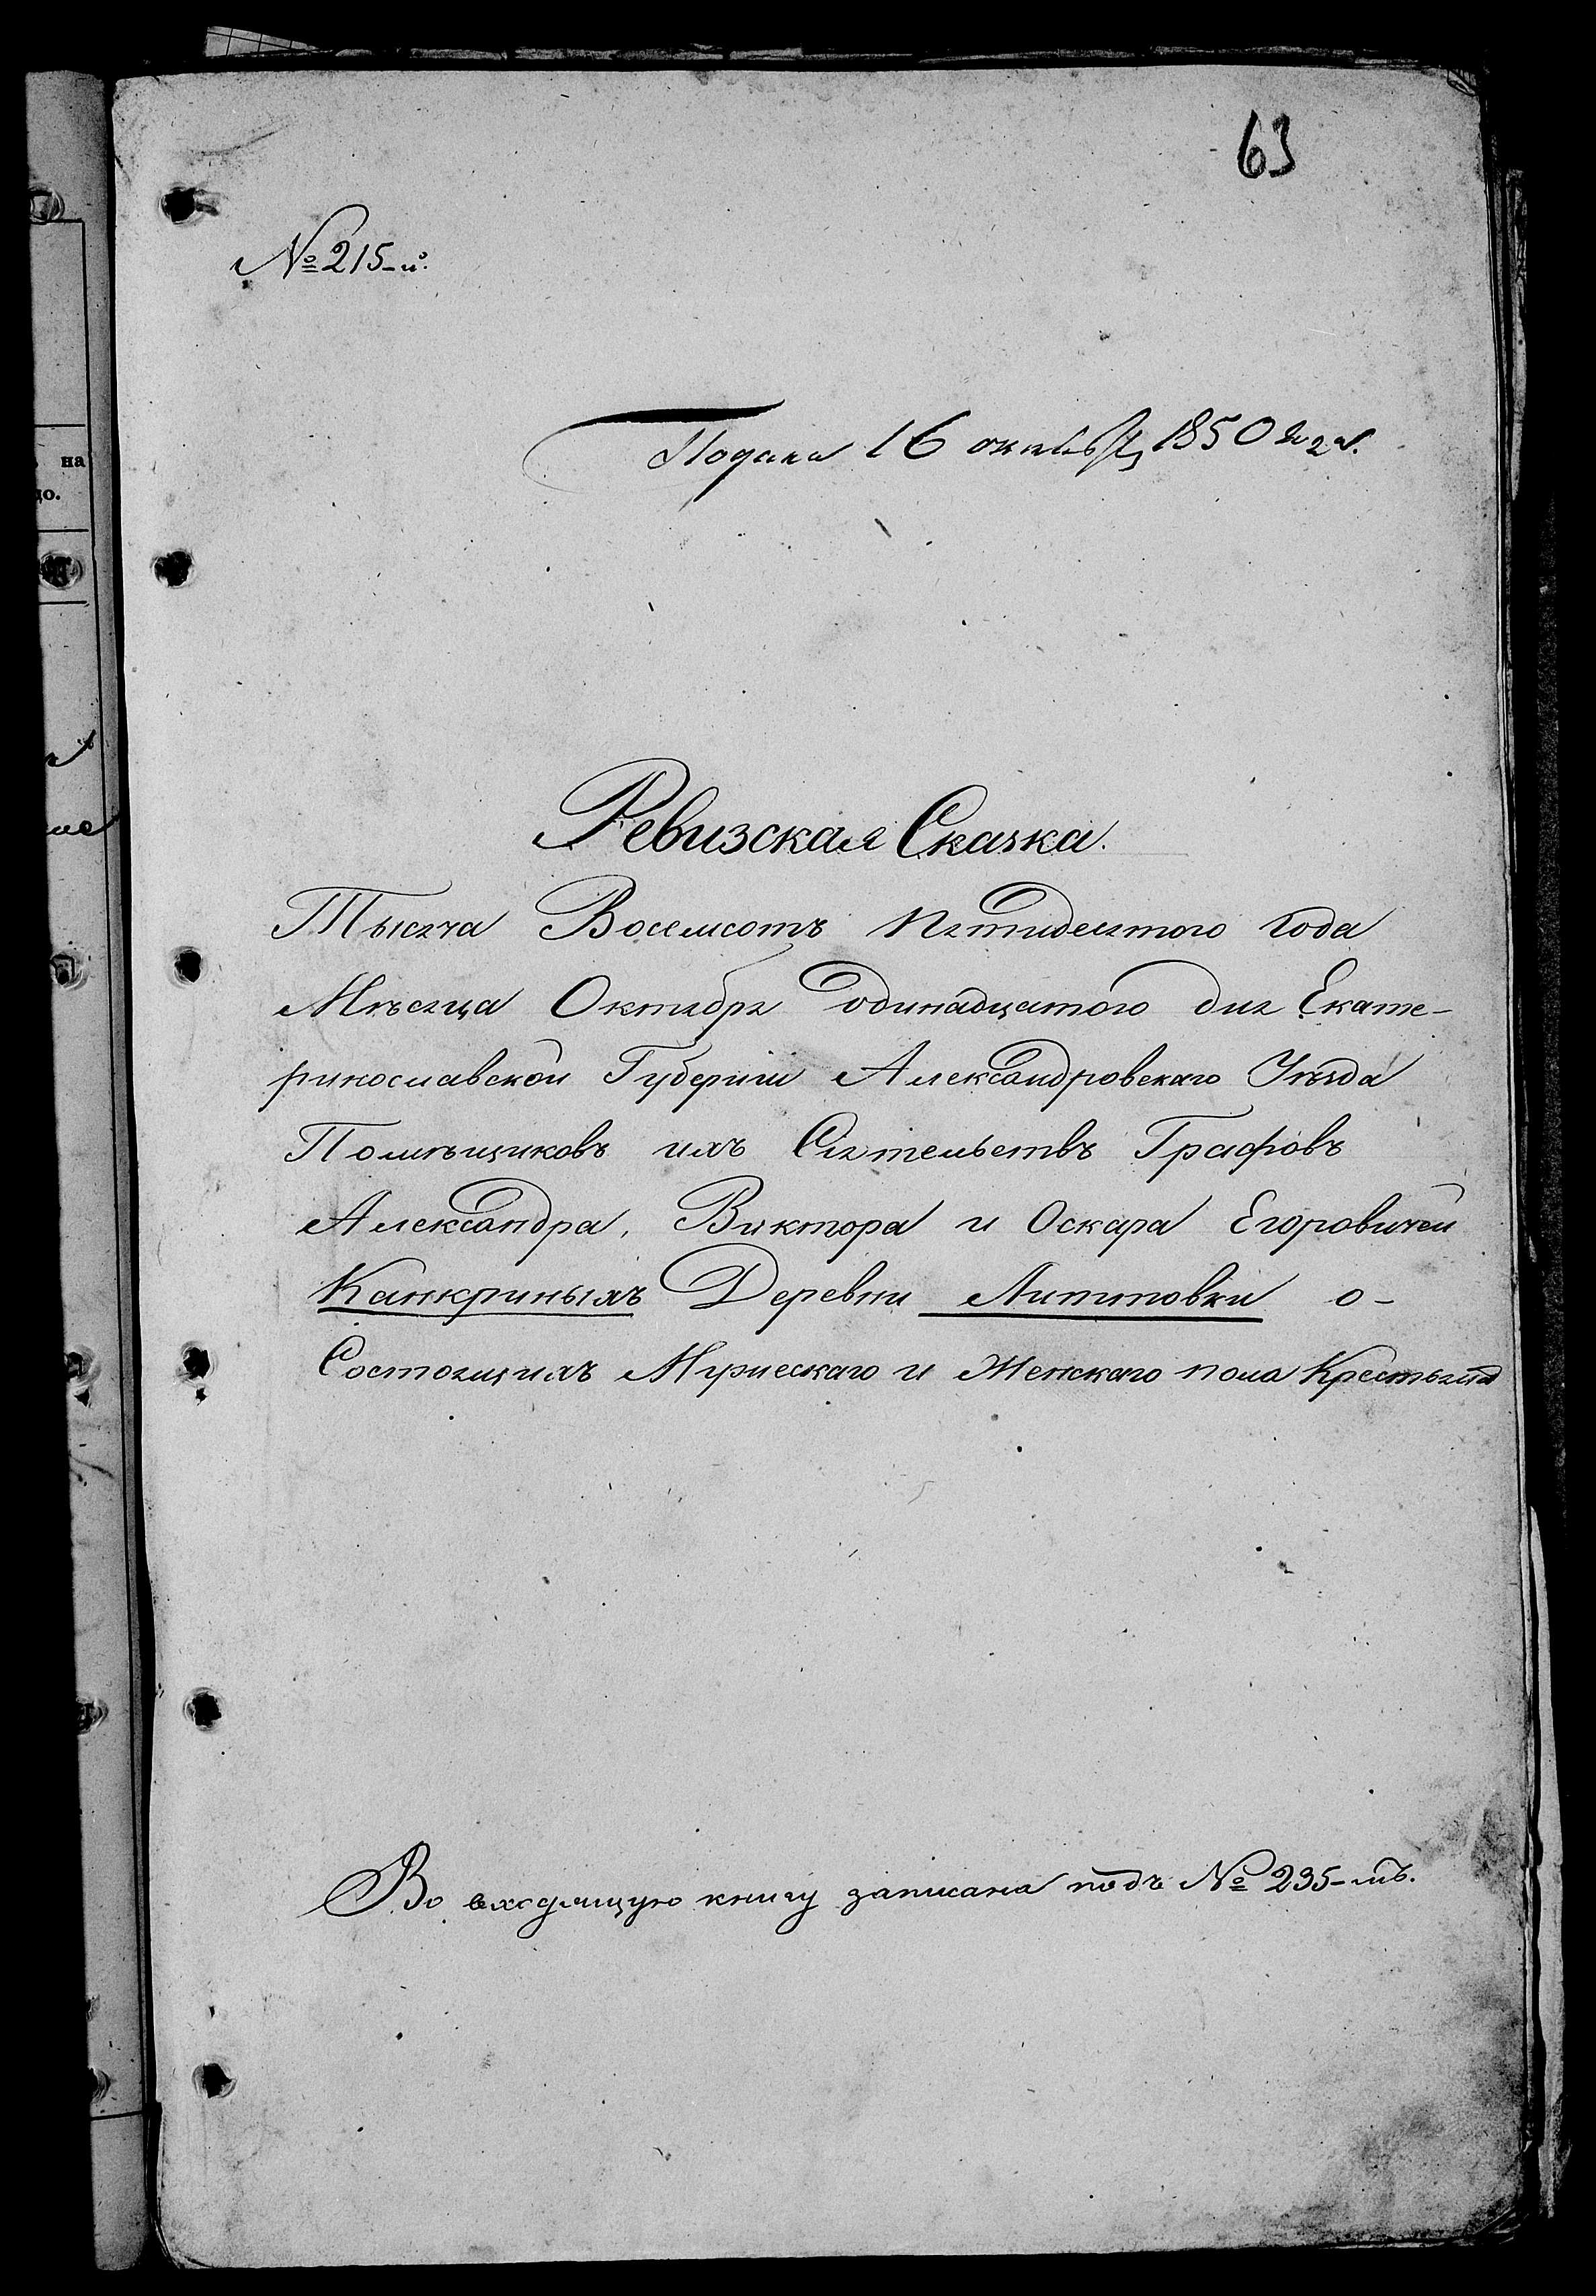 63
№ 215-й.
Подана 16 октября 1850 года.
Ревизская Сказка.
Тысяча Восемсотъ пятидесятого года
Мѣсяца Октября одинадцатого дня Екате-
ринославской Губерніи Александровскаго Уѣзда
Помѣщиковъ ихъ Сіятельствъ Графовъ
Александра, Виктора и Оскара Егоровичей
Канкриныхъ Деревни Липтовки о-
Состоящихъ Мужескаго и Женскаго пола Крестьянъ
Во входящую книгу записана подъ № 235-мъ.
на
до.